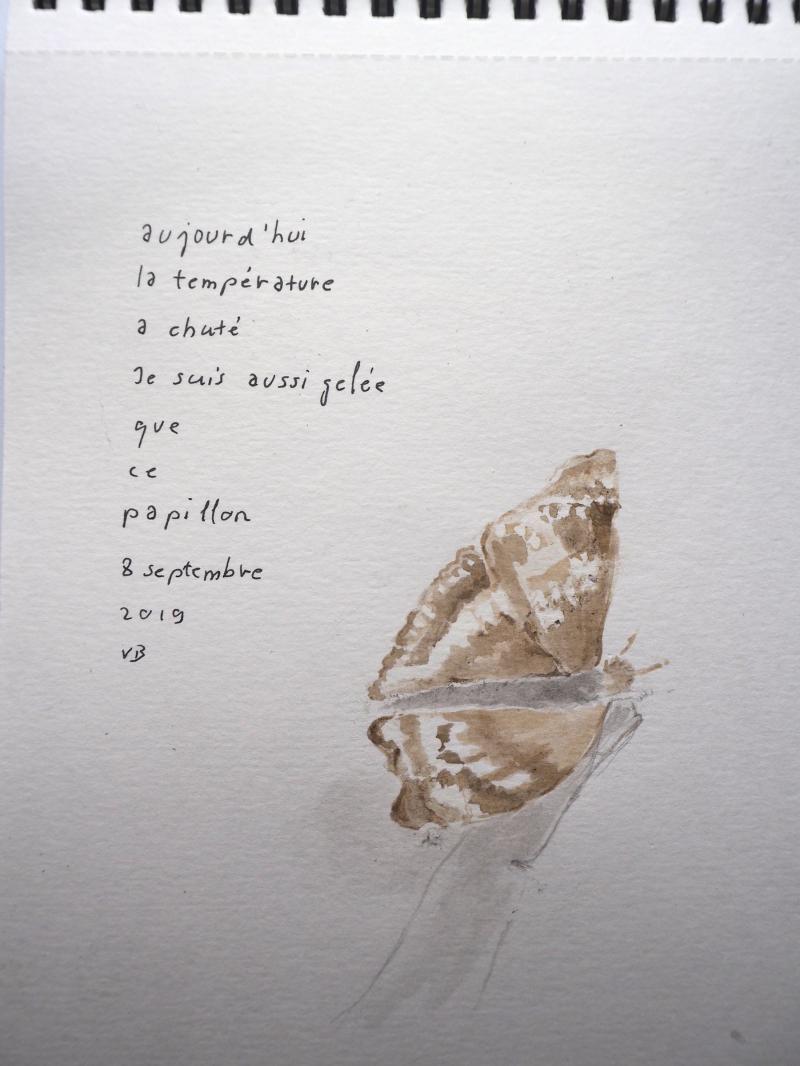 aujourd'hui
la température
a chuté
Je suis aussi gelée
que
ce
papillon
8 septembre
2019
VB